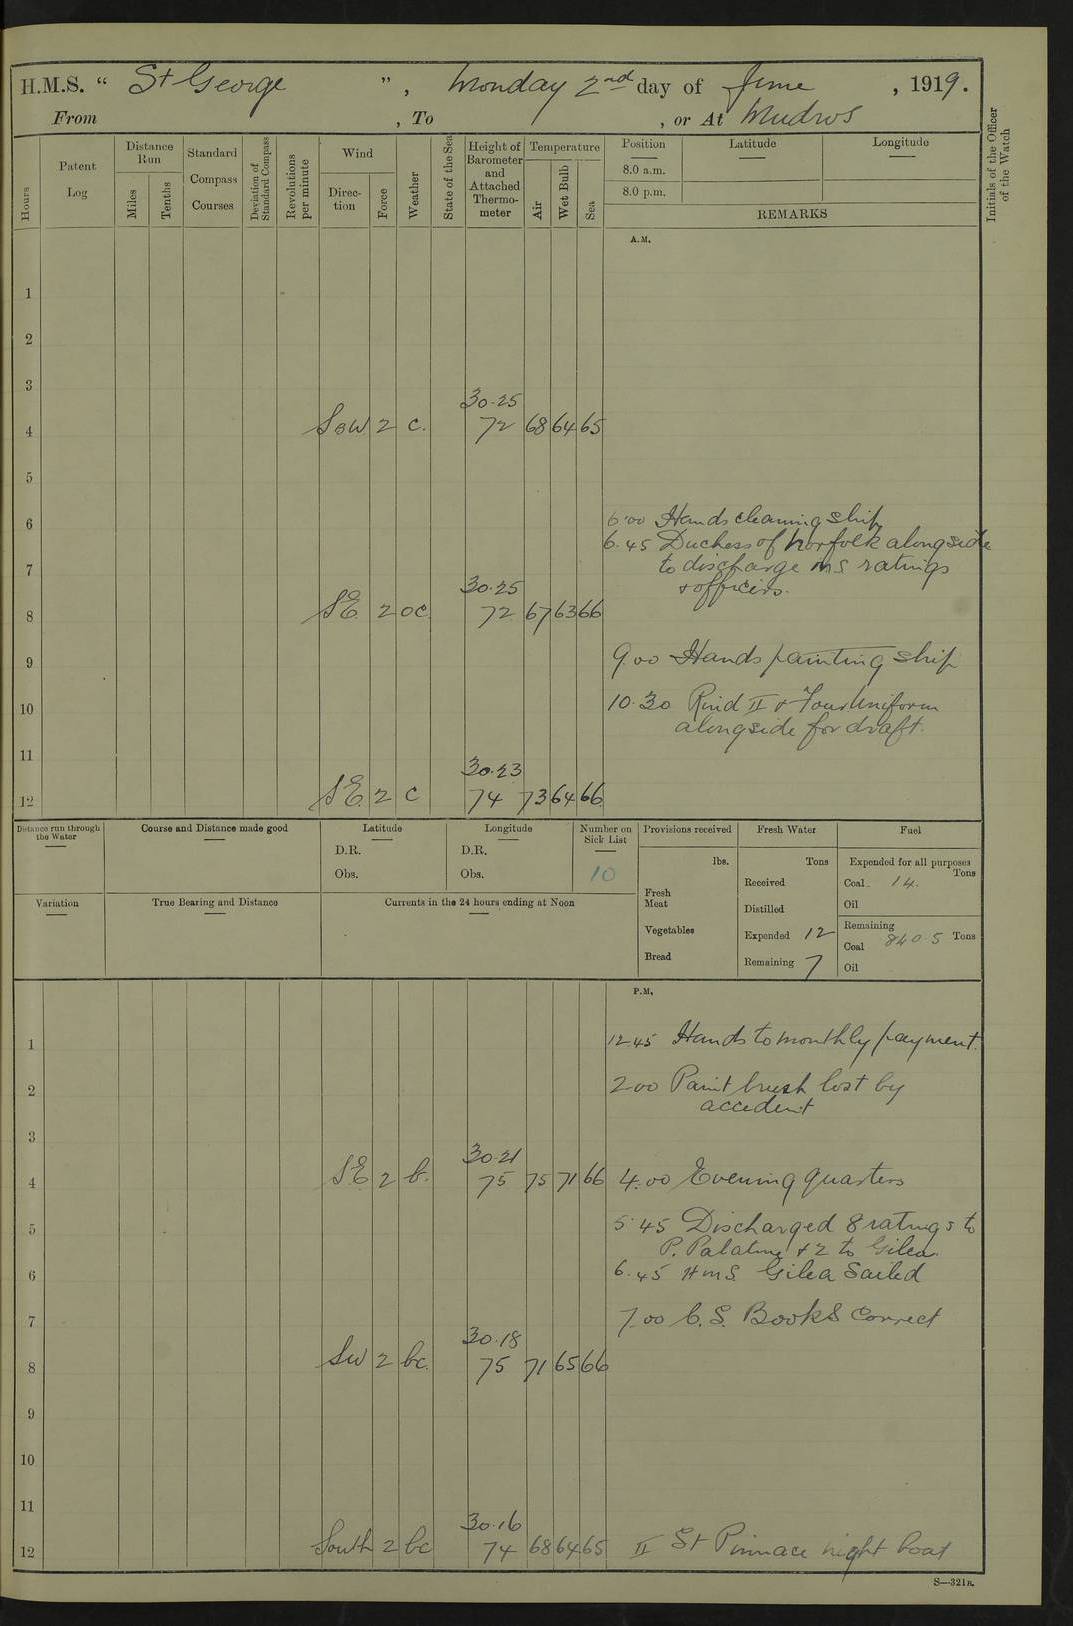 H.M.S. “ St George ” , Monday 2nd day of June , 1919.
From , To , or At Mudros
Hours
Patent Log
Distance Run
Miles
Tenths
Standard Compass Courses
Deviation of Standard Compass
Revolutions per minute
Wind
Direction
Force
Weather
State of the Sea
Height of Barometer and Attached Thermometer
Temperature
Air
Wet Bulb
Sea
Position
8.0 a.m.
8.0 p.m.
Latitude
Longitude
REMARKS
Initials of the Officer of the Watch
A.M.
1
2
3
30.25
4 SBW 2 c. 72 68 64 65
5
6 6.00 Hands cleaning ship
6.45 Duchess of Norfolk alongside
7 to discharge ratings
30.25 & officers.
8 SE 2 oc 72 67 63 66
9 9.00 Hands painting ship
10 10.30 Rind II & Four Uniform
alongside for draft.
11
30.23
12 SE 2 c 74 73 64 66
Distance run through the Water
Course and Distance made good
Latitude
D.R.
Obs.
Longitude
D.R.
Obs.
Number on Sick List
10
Provisions received
lbs.
Fresh Meat
Vegetables
Bread
Fresh Water
Tons
Received
Distilled
Expended 12
Remaining 7
Fuel
Expended for all purposes
Tons
Coal 14.
Oil
Remaining
Coal 840.5 Tons
Oil
Variation
True Bearing and Distance
Currents in the 24 hours ending at Noon
P.M.
1 12.45 Hands to monthly payment.
2 2.00 Paint brush lost by
accident
3
30.21
4 SE 2 b. 75 75 71 66 4.00 Evening quarters
5 5.45 Discharged 8 ratings to
P. Palatine & 2 to Gilea.
6 6.45 HMS Gilea Sailed
7 7.00 C.S. Books Correct
30.18
8 SW 2 bc. 75 71 65 66
9
10
11
30.16
12 South 2 bc 74 68 64 65 II St Pinnace night boat
S—321B.